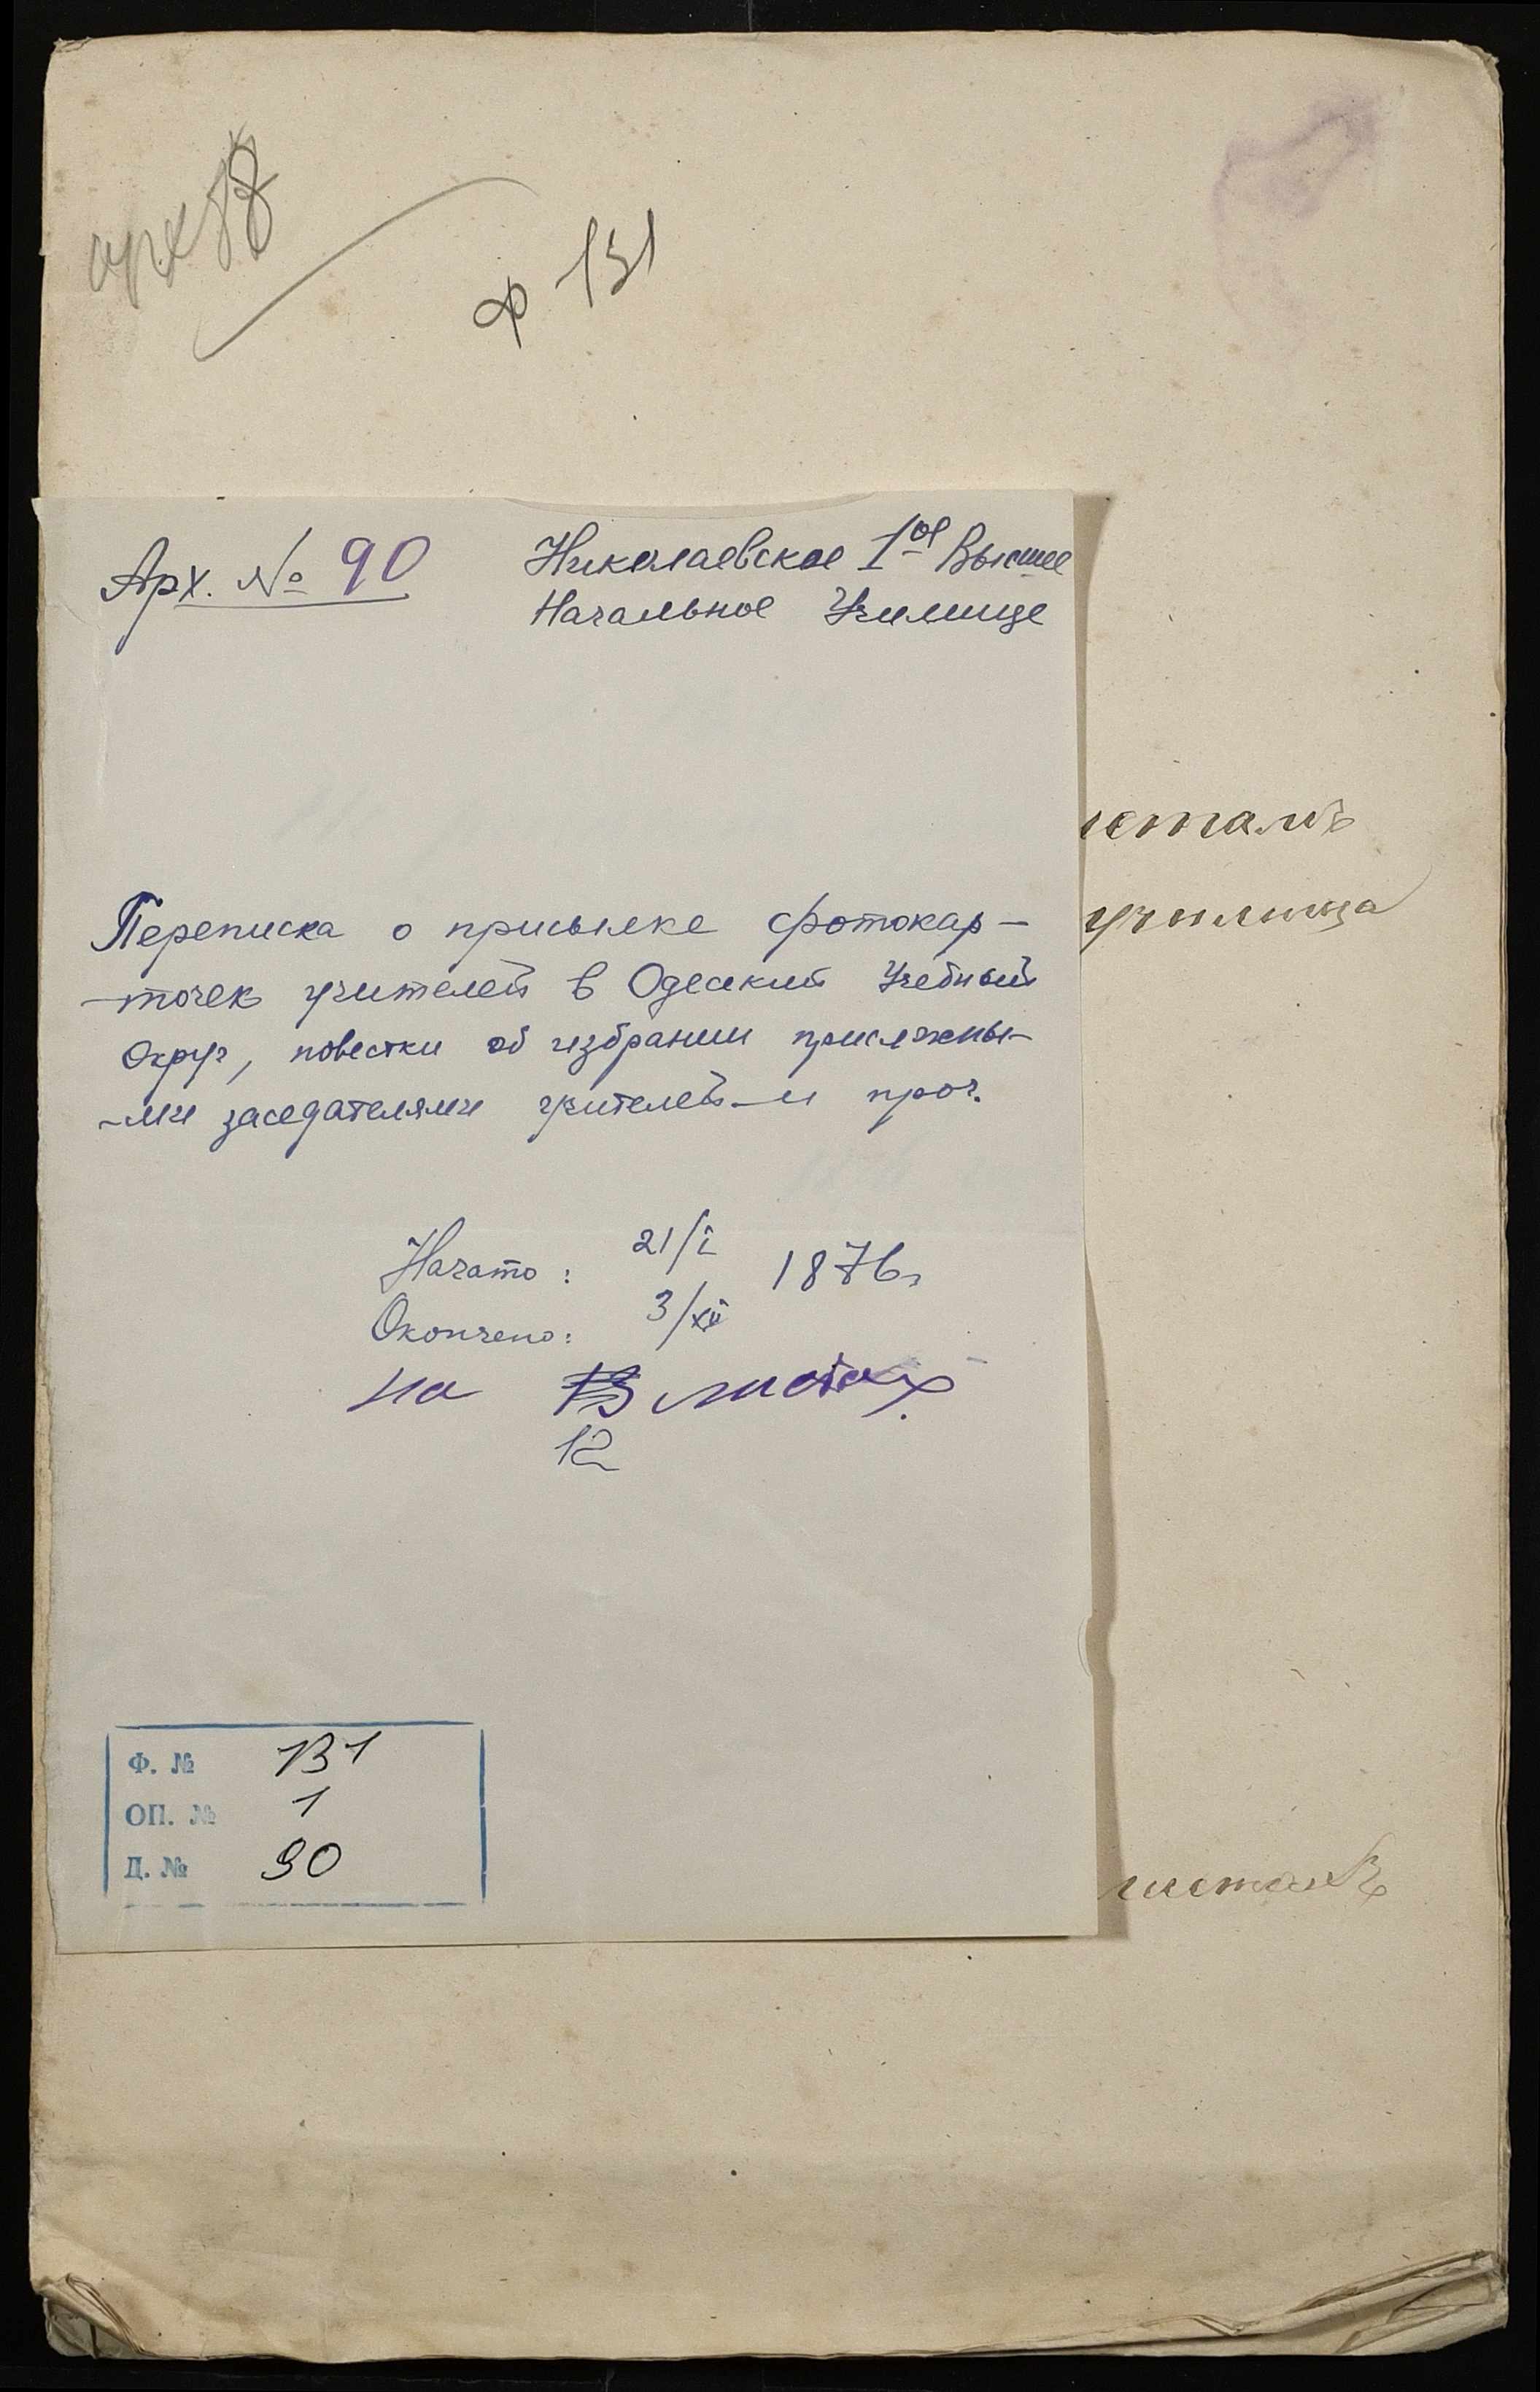 арх
ф 131
Арх. № 90
Николаевское 1ое Высшее
Начальное Училище
училища
Переписка о присылке фотокар-
-точек учителей в Одесский Учебный
Округ, повестки об избрании присяжны-
-ми заседателями учителей и проч.
Начато: 21/I 1876г
Окончено: 3/XII
на 13 листах
12
Ф. № 131
ОП. № 1
Д. № 90